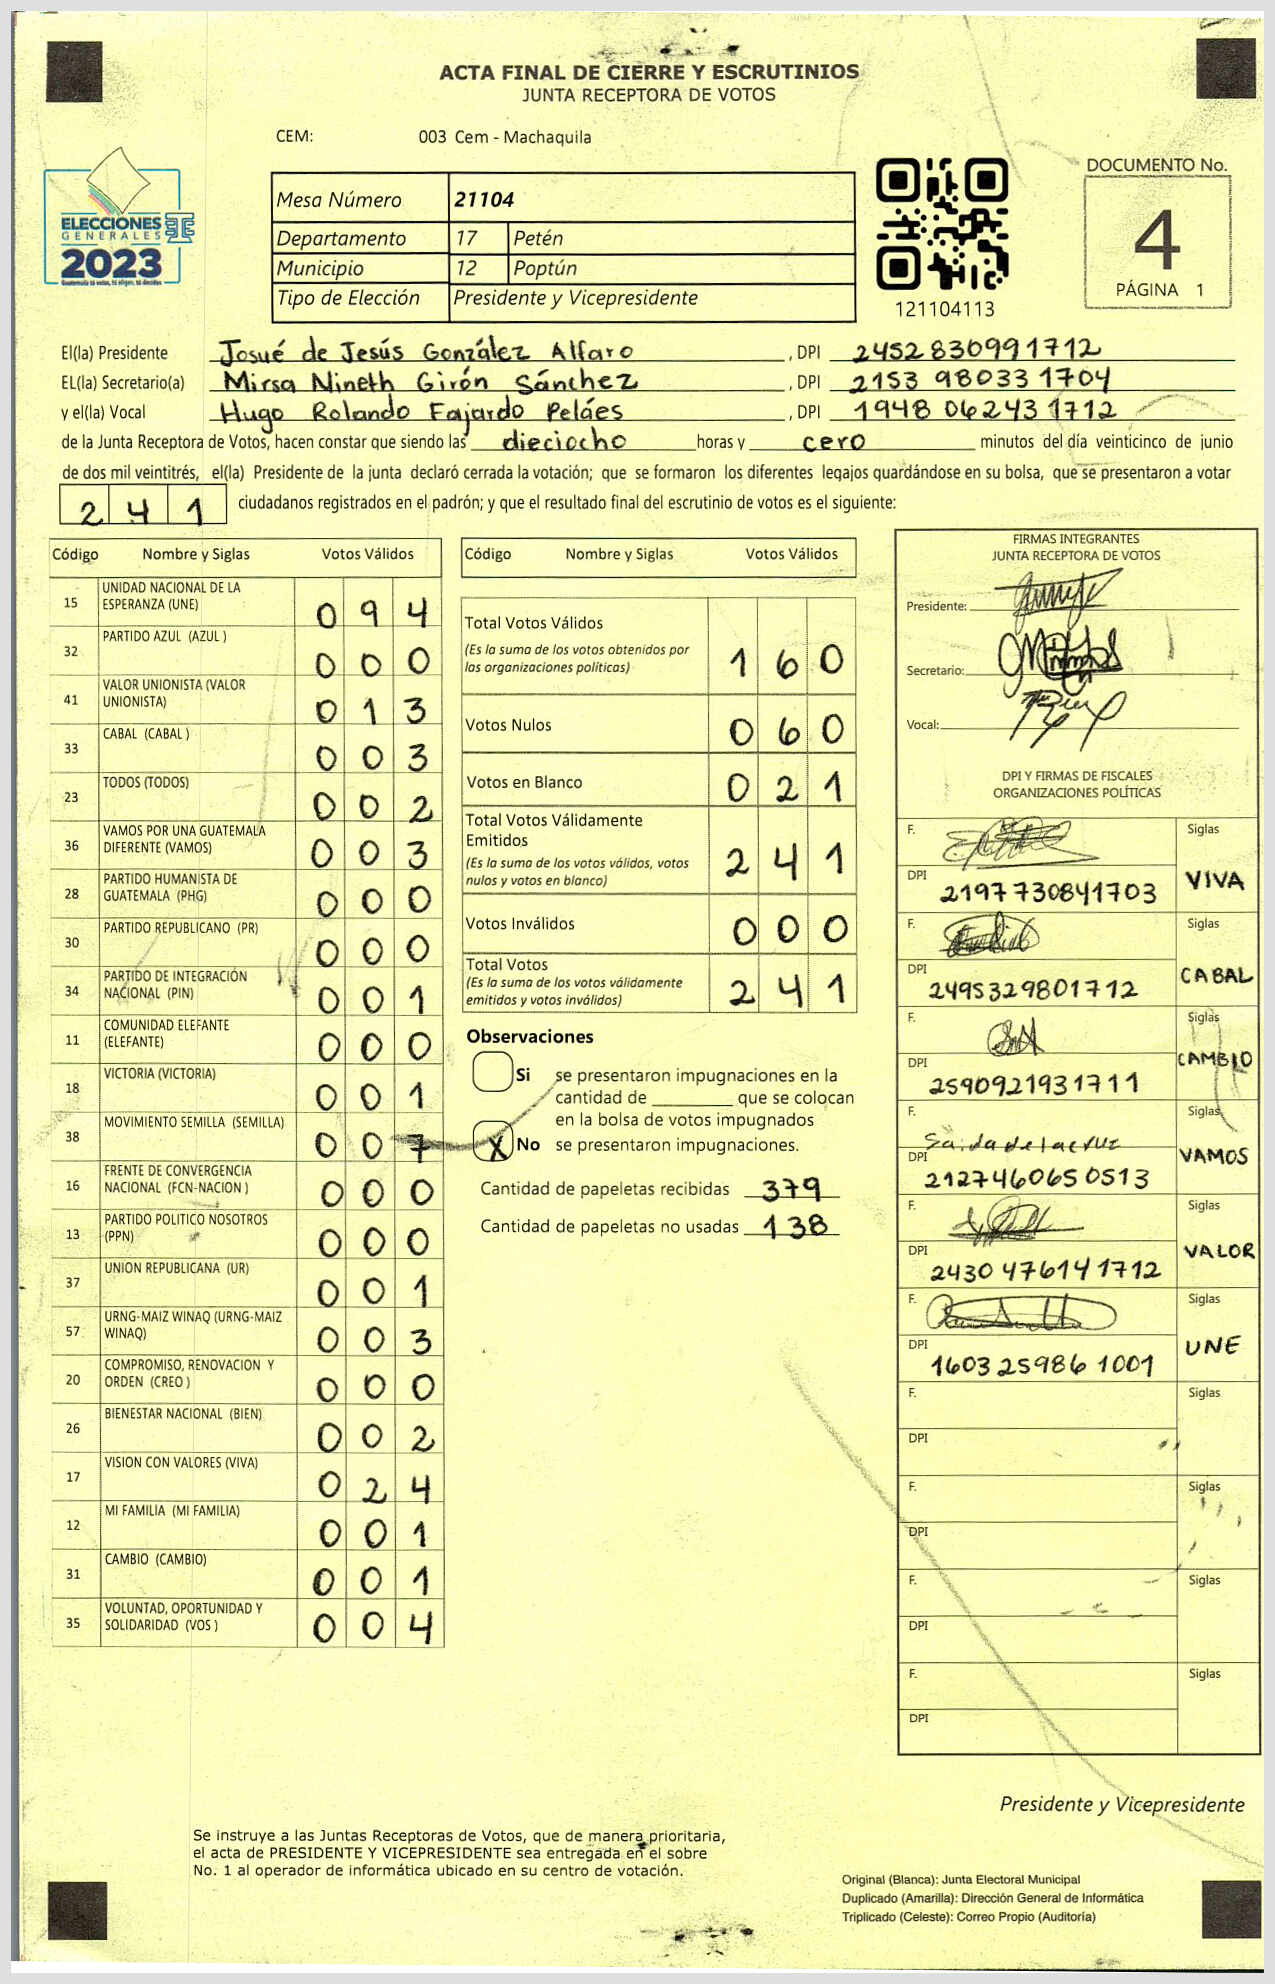 ACTA FINAL DE CIERRE Y ESCRUTINIOS
JUNTA RECEPTORA DE VOTOS
CEM: 003 Cem - Machaquila
ELECCIONES
GENERALES
2023
Guatemala tú votas, tú eliges, tú decides
Mesa Número 21104
Departamento 17 Petén
Municipio 12 Poptún
Tipo de Elección Presidente y Vicepresidente
121104113
DOCUMENTO No.
4
PÁGINA 1
El(la) Presidente Josué de Jesús González Alfaro , DPI 2452 83099 1712
EL(la) Secretario(a) Mirsa Nineth Girón Sánchez , DPI 2153 98033 1704
y el(la) Vocal Hugo Rolando Fajardo Peláes , DPI 1948 06243 1712
de la Junta Receptora de Votos, hacen constar que siendo las dieciocho horas y cero minutos del día veinticinco de junio
de dos mil veintitrés, el(la) Presidente de la junta declaró cerrada la votación; que se formaron los diferentes legajos guardándose en su bolsa, que se presentaron a votar
241 ciudadanos registrados en el padrón; y que el resultado final del escrutinio de votos es el siguiente:
Código Nombre y Siglas Votos Válidos
15 UNIDAD NACIONAL DE LA ESPERANZA (UNE) 094
32 PARTIDO AZUL (AZUL ) 000
41 VALOR UNIONISTA (VALOR UNIONISTA) 013
33 CABAL (CABAL ) 003
23 TODOS (TODOS) 002
36 VAMOS POR UNA GUATEMALA DIFERENTE (VAMOS) 003
28 PARTIDO HUMANISTA DE GUATEMALA (PHG) 000
30 PARTIDO REPUBLICANO (PR) 000
34 PARTIDO DE INTEGRACIÓN NACIONAL (PIN) 001
11 COMUNIDAD ELEFANTE (ELEFANTE) 000
18 VICTORIA (VICTORIA) 001
38 MOVIMIENTO SEMILLA (SEMILLA) 007
16 FRENTE DE CONVERGENCIA NACIONAL (FCN-NACION ) 000
13 PARTIDO POLITICO NOSOTROS (PPN) 000
37 UNION REPUBLICANA (UR) 001
57 URNG-MAIZ WINAQ (URNG-MAIZ WINAQ) 003
20 COMPROMISO, RENOVACION Y ORDEN (CREO ) 000
26 BIENESTAR NACIONAL (BIEN) 002
17 VISION CON VALORES (VIVA) 024
12 MI FAMILIA (MI FAMILIA) 001
31 CAMBIO (CAMBIO) 001
35 VOLUNTAD, OPORTUNIDAD Y SOLIDARIDAD (VOS ) 004
Código Nombre y Siglas Votos Válidos
Total Votos Válidos 160
(Es la suma de los votos obtenidos por
las organizaciones políticas)
Votos Nulos 060
Votos en Blanco 021
Total Votos Válidamente
Emitidos 241
(Es la suma de los votos válidos, votos
nulos y votos en blanco)
Votos Inválidos 000
Total Votos 241
(Es la suma de los votos válidamente
emitidos y votos inválidos)
Observaciones
Si se presentaron impugnaciones en la
cantidad de ________ que se colocan
en la bolsa de votos impugnados
X No se presentaron impugnaciones.
Cantidad de papeletas recibidas 379
Cantidad de papeletas no usadas 138
FIRMAS INTEGRANTES
JUNTA RECEPTORA DE VOTOS
Presidente:
Secretario:
Vocal:
DPI Y FIRMAS DE FISCALES
ORGANIZACIONES POLÍTICAS
F. Siglas
DPI 2197730841703 VIVA
F. Siglas
DPI 2495329801712 CABAL
F. Siglas
DPI 2590921931711 CAMBIO
F. Saida de la cruz Siglas
DPI 2127460650513 VAMOS
F. Siglas
DPI 2430 47614 1712 VALOR
F. Siglas
DPI 1603 25986 1001 UNE
F. Siglas
DPI
F. Siglas
DPI
F. Siglas
DPI
F. Siglas
DPI
Presidente y Vicepresidente
Se instruye a las Juntas Receptoras de Votos, que de manera prioritaria,
el acta de PRESIDENTE Y VICEPRESIDENTE sea entregada en el sobre
No. 1 al operador de informática ubicado en su centro de votación.
Original (Blanca): Junta Electoral Municipal
Duplicado (Amarilla): Dirección General de Informática
Triplicado (Celeste): Correo Propio (Auditoría)